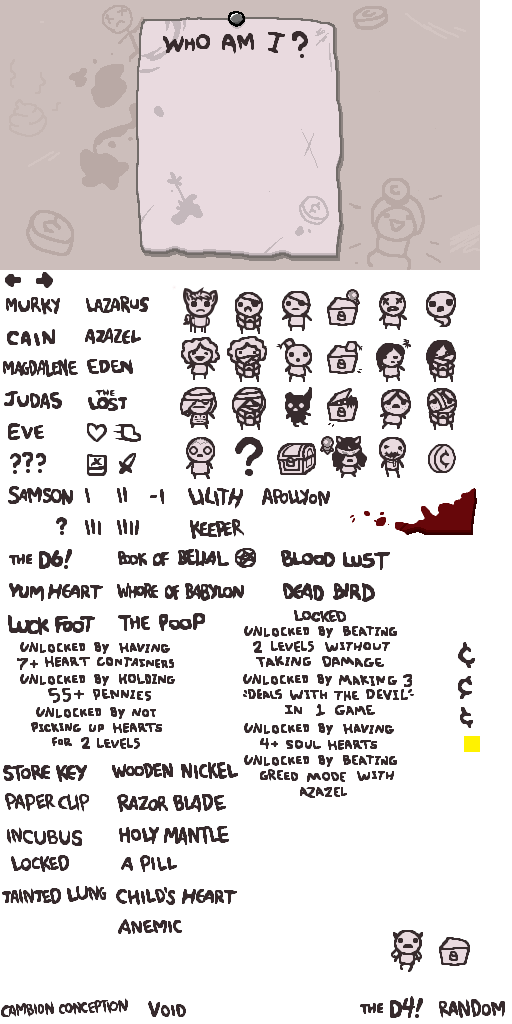 WHO AM I?
MURKY LAZARUS
CAIN AZAZEL
MAGDALENE EDEN
JUDAS THE LOST
EVE
???
?
SAMSON I II -I LILITH APOLLYON
? III IIII KEEPER
THE D6! BOOK OF BELIAL BLOOD LUST
YUM HEART WHORE OF BABYLON DEAD BIRD
LUCK FOOT THE POOP
LOCKED
UNLOCKED BY HAVING
7+ HEART CONTAINERS
UNLOCKED BY HOLDING
55+ PENNIES
UNLOCKED BY NOT
PICKING UP HEARTS
FOR 2 LEVELS
UNLOCKED BY BEATING
2 LEVELS WITHOUT
TAKING DAMAGE
UNLOCKED BY MAKING 3
"DEALS WITH THE DEVIL"
IN 1 GAME
UNLOCKED BY HAVING
4+ SOUL HEARTS
UNLOCKED BY BEATING
GREED MODE WITH
AZAZEL
¢
¢
¢
STORE KEY WOODEN NICKEL
PAPER CLIP RAZOR BLADE
INCUBUS HOLY MANTLE
LOCKED A PILL
TAINTED LUNG CHILD'S HEART
ANEMIC
CAMBION CONCEPTION VOID THE D4! RANDOM